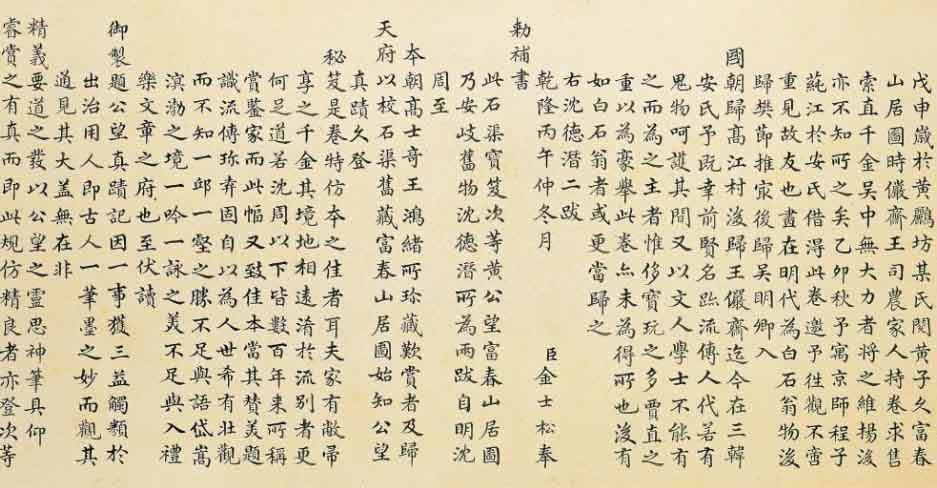 戊申歲於黃鸝坊某氏閱黃子久富春
山居圖時儼齋王司農家人持卷求售
索直千金吳中無大力者將之維揚後
亦不知所之矣乙卯秋予寓京師程子
蒓江於安氏借得此卷邀予往觀不啻
重見故友也畫在明代為白石翁物後
歸樊節推宷後歸吳明卿入
國朝歸高江村後歸王儼齋迄今在三韓
安氏予既幸前賢名跡流傳人代若有
鬼物呵護其間又以文人學士不能有
之而為之主者惟侈寶玩之多賈直之
重以為豪舉此卷亦未為得所也後有
如白石翁者或更當歸之
右沈德潛二跋
乾隆丙午仲冬月 臣金士松奉
勅補書
此石渠寶笈次等黃公望富春山居圖
乃安岐舊物沈德潛所為兩跋自明沈
周至
本朝高士奇王鴻緒所珍藏歎賞者及歸
天府以校石渠舊藏富春山居圖始知公望
真蹟久登
秘笈是卷特仿本之佳者耳夫家有敝帚
享之千金其境地相遠淆於流別者更
何足道若沈周以下皆數百年來所稱
賞鑒家而此幅又致佳本當其贊美題
識流傳珎弆固自以為人世希有壯觀
而不知一邱一壑之勝不足與語岱嵩
溟渤之境一吟一詠之美不足與入禮
樂文章之府也至伏讀
御製題公望真蹟記因一事獲三益觸類於
出治用人即古人一筆墨之妙而觀其
通見其大蓋無在非
精義要道之發以公望之靈思神筆具仰
睿賞之有真而即此規仿精良者亦登次等